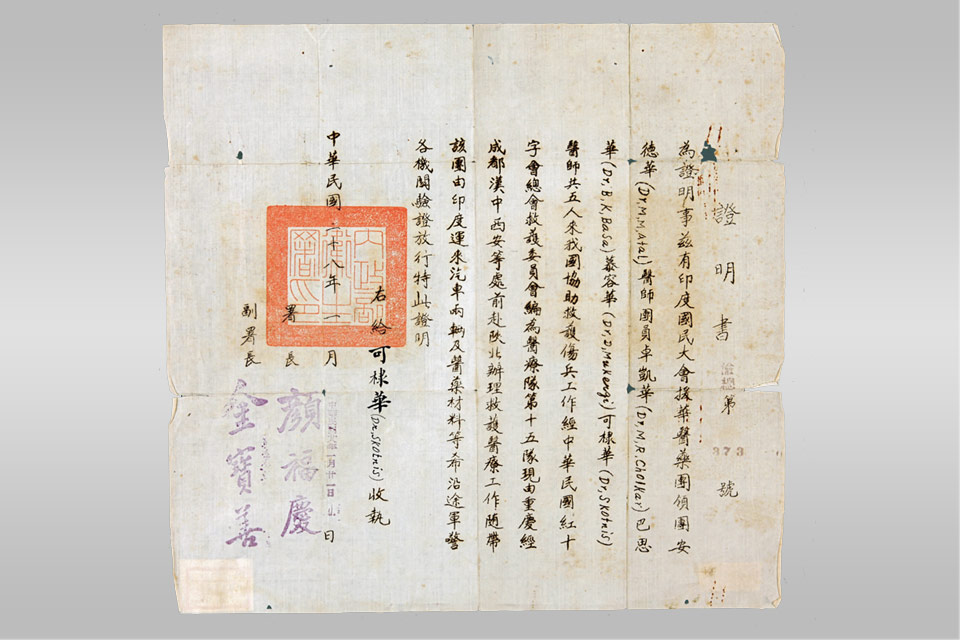 證明書
渝總第373號
為證明事茲有印度國民大會援華醫藥團領團安
德華(Dr,M,M,Atal)醫師團員卓凱華(Dr,M,R,Cholkar)巴思
華(Dr,B,K,Basa)慕容華(Dr,D,Mukengi)可棣華(Dr,Skotnis)
醫師共五人來我國協助救護傷兵工作經中華民國紅十
字會總會救護委員會編為醫療隊第十五隊現由重慶經
成都漢中西安等處前赴陝北辦理救護醫療工作隨帶
該團由印度運來汽車兩輛及醫藥材料等希沿途軍警
各機關驗證放行特此證明
右給可棣華(Dr,Skotnis)收執
中華民國二十八年一月廿一日
內政部衛生署印
署長
顏福慶
副署長
金寶善